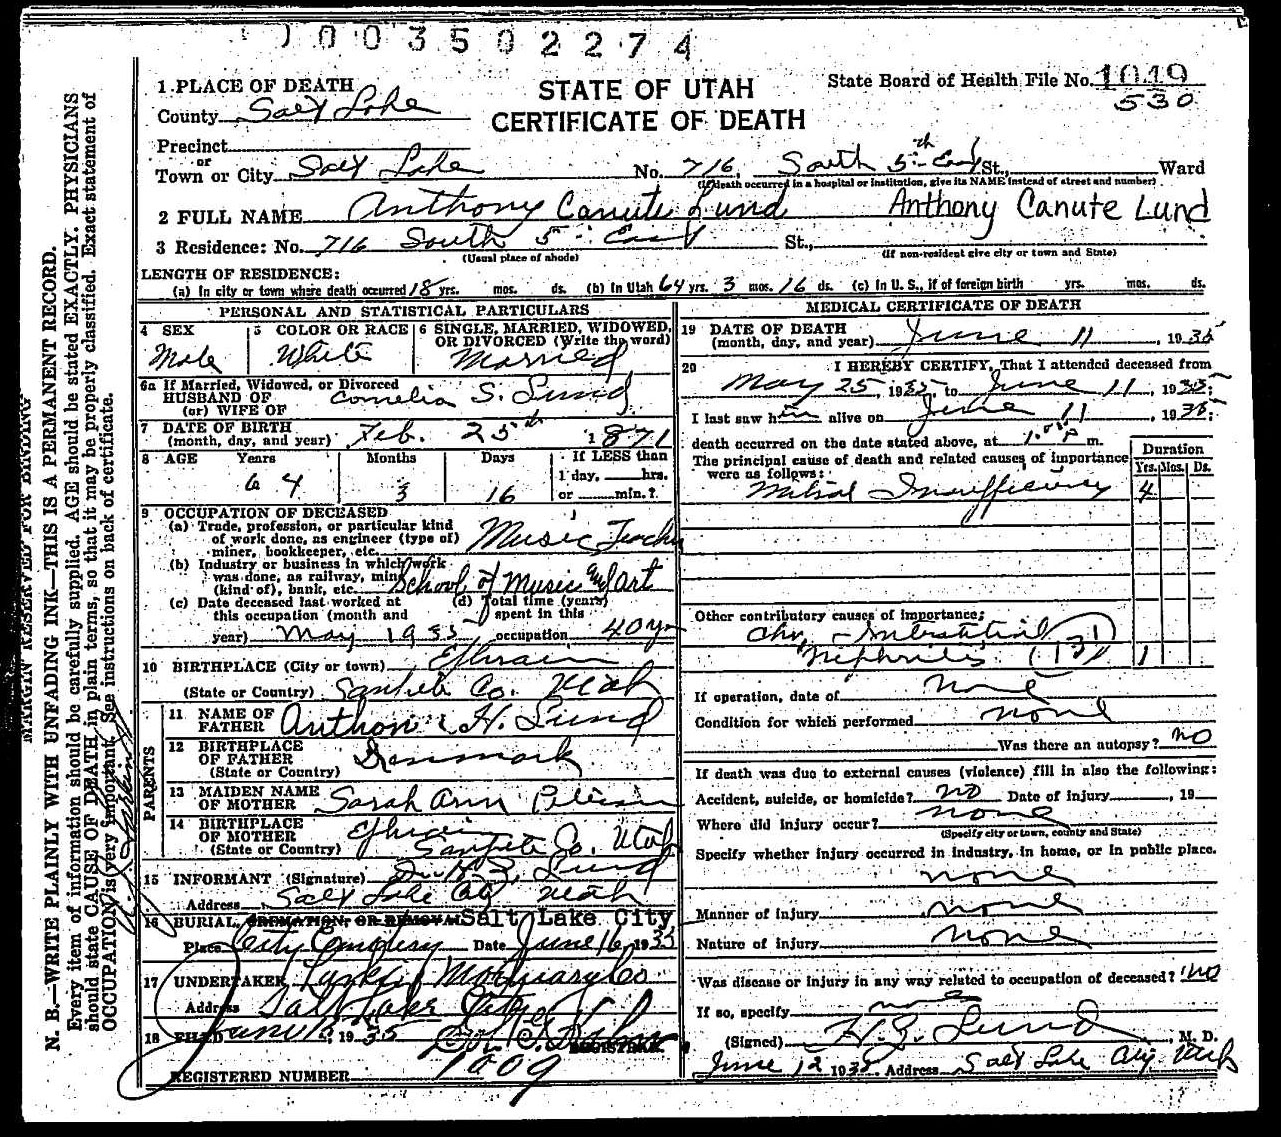 1003502274
1 PLACE OF DEATH
STATE OF UTAH
CERTIFICATE OF DEATH
State Board of Health File No. 1049
530
County Salt Lake
Precinct
or
Town or City Salt Lake No. 716, South 5th East St., Ward
(If death occurred in a hospital or institution, give its NAME instead of street and number)
2 FULL NAME Anthony Canute Lund Anthony Canute Lund
3 Residence: No. 716 South 5 East St.,
(Usual place of abode) (If non-resident give city or town and State)
LENGTH OF RESIDENCE:
(a) In city or town where death occurred 18 yrs. mos. ds. (b) In Utah 64 yrs. 3 mos. 16 ds. (c) In U. S., if of foreign birth yrs. mos. ds.
PERSONAL AND STATISTICAL PARTICULARS
4 SEX 5 COLOR OR RACE 6 SINGLE, MARRIED, WIDOWED,
OR DIVORCED (Write the word)
Male White Married
6a If Married, Widowed, or Divorced
HUSBAND OF Cornelia S. Lund
(or) WIFE OF
7 DATE OF BIRTH
(month, day, and year) Feb. 25th 1871
8 AGE Years Months Days If LESS than
1 day, hrs.
64 3 16 or min.?
9 OCCUPATION OF DECEASED
(a) Trade, profession, or particular kind
of work done, as engineer (type of)
miner, bookkeeper, etc. Music Teacher
(b) Industry or business in which work
was done, as railway, mine
(kind of), bank, etc. School of Music and Art
(c) Date deceased last worked at
this occupation (month and
year) May 1935
(d) Total time (years)
spent in this
occupation 40 yr
10 BIRTHPLACE (City or town) Ephraim
(State or Country) Sanpete Co. Utah
PARENTS
11 NAME OF
FATHER Anthon H. Lund
12 BIRTHPLACE
OF FATHER Denmark
(State or Country)
13 MAIDEN NAME
OF MOTHER Sarah Ann Peterson
14 BIRTHPLACE
OF MOTHER Ephraim
(State or Country) Sanpete Co. Utah
15 INFORMANT (Signature) Lund
Address Salt Lake City Utah
16 BURIAL, CREMATION, OR REMOVAL Salt Lake City
Place City Cemetery Date June 16, 1935
17 UNDERTAKER Larkin Mortuary Co
Address Salt Lake City
18 FILED 1935
REGISTRAR
REGISTERED NUMBER 1009
MEDICAL CERTIFICATE OF DEATH
19 DATE OF DEATH
(month, day, and year) June 11, 1935
20 I HEREBY CERTIFY, That I attended deceased from
May 25, 1935, to June 11, 1935;
I last saw him alive on June 11, 1935;
death occurred on the date stated above, at P m.
The principal cause of death and related causes of importance
were as follows:
Duration
Yrs. Mos. Ds.
Mitral Insufficiency 4
Other contributory causes of importance:
Chr. Interstitial
Nephritis (131) 1
If operation, date of none
Condition for which performed none
Was there an autopsy? no
If death was due to external causes (violence) fill in also the following:
Accident, suicide, or homicide? no Date of injury , 19
Where did injury occur? none
(Specify city or town, county and State)
Specify whether injury occurred in industry, in home, or in public place.
none
Manner of injury none
Nature of injury none
Was disease or injury in any way related to occupation of deceased? no
If so, specify none
(Signed) H. Z. Lund, M. D.
June 12 1935 Address Salt Lake City, Utah
MARGIN RESERVED FOR BINDING
N. B.—WRITE PLAINLY WITH UNFADING INK—THIS IS A PERMANENT RECORD.
Every item of information should be carefully supplied. AGE should be stated EXACTLY. PHYSICIANS
should state CAUSE OF DEATH in plain terms, so that it may be properly classified. Exact statement of
OCCUPATION is very important. See instructions on back of certificate.